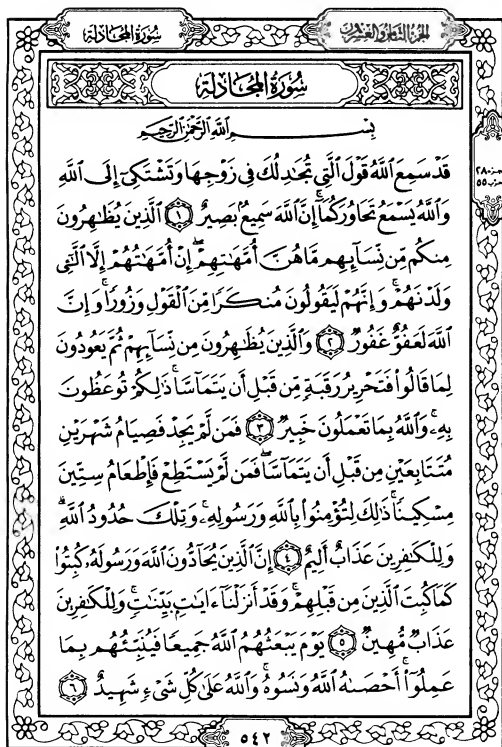 الجزء الثامن والعشرون
سُورَةُ المُجَادلَة
سُورَةُ المُجَادلَة
بِسْمِ اللَّهِ الرَّحْمَٰنِ الرَّحِيمِ
قَدْ سَمِعَ اللَّهُ قَوْلَ الَّتِي تُجَٰدِلُكَ فِي زَوْجِهَا وَتَشْتَكِىٓ إِلَى اللَّهِ
وَاللَّهُ يَسْمَعُ تَحَاوُرَكُمَآ ۚ إِنَّ اللَّهَ سَمِيعٌۢ بَصِيرٌ ١ الَّذِينَ يُظَٰهِرُونَ
مِنكُم مِّن نِّسَآئِهِم مَّا هُنَّ أُمَّهَٰتِهِمْ ۖ إِنْ أُمَّهَٰتُهُمْ إِلَّا الَّٰٓـِٔي
وَلَدْنَهُمْ ۚ وَإِنَّهُمْ لَيَقُولُونَ مُنكَرًا مِّنَ الْقَوْلِ وَزُورًا ۚ وَإِنَّ
اللَّهَ لَعَفُوٌّ غَفُورٌ ٢ وَالَّذِينَ يُظَٰهِرُونَ مِن نِّسَآئِهِمْ ثُمَّ يَعُودُونَ
لِمَا قَالُوا۟ فَتَحْرِيرُ رَقَبَةٍ مِّن قَبْلِ أَن يَتَمَآسَّا ۚ ذَٰلِكُمْ تُوعَظُونَ
بِهِۦ ۚ وَاللَّهُ بِمَا تَعْمَلُونَ خَبِيرٌ ٣ فَمَن لَّمْ يَجِدْ فَصِيَامُ شَهْرَيْنِ
مُتَتَابِعَيْنِ مِن قَبْلِ أَن يَتَمَآسَّا ۖ فَمَن لَّمْ يَسْتَطِعْ فَإِطْعَامُ سِتِّينَ
مِسْكِينًا ۚ ذَٰلِكَ لِتُؤْمِنُوا۟ بِاللَّهِ وَرَسُولِهِۦ ۚ وَتِلْكَ حُدُودُ اللَّهِ ۗ
وَلِلْكَٰفِرِينَ عَذَابٌ أَلِيمٌ ٤ إِنَّ الَّذِينَ يُحَآدُّونَ اللَّهَ وَرَسُولَهُۥ كُبِتُوا۟
كَمَا كُبِتَ الَّذِينَ مِن قَبْلِهِمْ ۚ وَقَدْ أَنزَلْنَآ ءَايَٰتٍۭ بَيِّنَٰتٍ ۚ وَلِلْكَٰفِرِينَ
عَذَابٌ مُّهِينٌ ٥ يَوْمَ يَبْعَثُهُمُ اللَّهُ جَمِيعًا فَيُنَبِّئُهُم بِمَا
عَمِلُوٓا۟ ۚ أَحْصَىٰهُ اللَّهُ وَنَسُوهُ ۚ وَاللَّهُ عَلَىٰ كُلِّ شَىْءٍ شَهِيدٌ ٦
٥٤٢